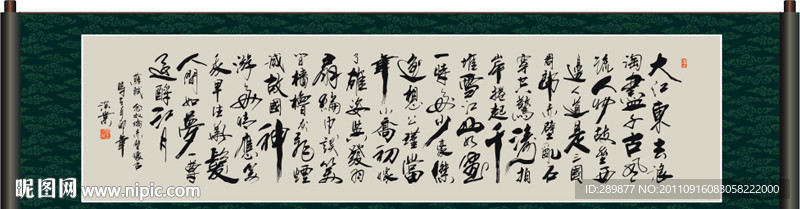 大江東去浪
淘盡千古風
流人物故壘西
邊人道是三國
周郎赤壁亂石
穿空驚濤拍
岸捲起千
堆雪江山如畫
一時多少豪傑
遙想公瑾當
年小喬初嫁
了雄姿英發羽
扇綸巾談笑
間檣櫓灰飛煙
滅故國神
游多情應笑
我早生華髮
人間如夢一尊
還酹江月
蘇軾 念奴嬌赤壁懷古
昵图网 www.nipic.com
ID:289877 NO:20110916083058222000